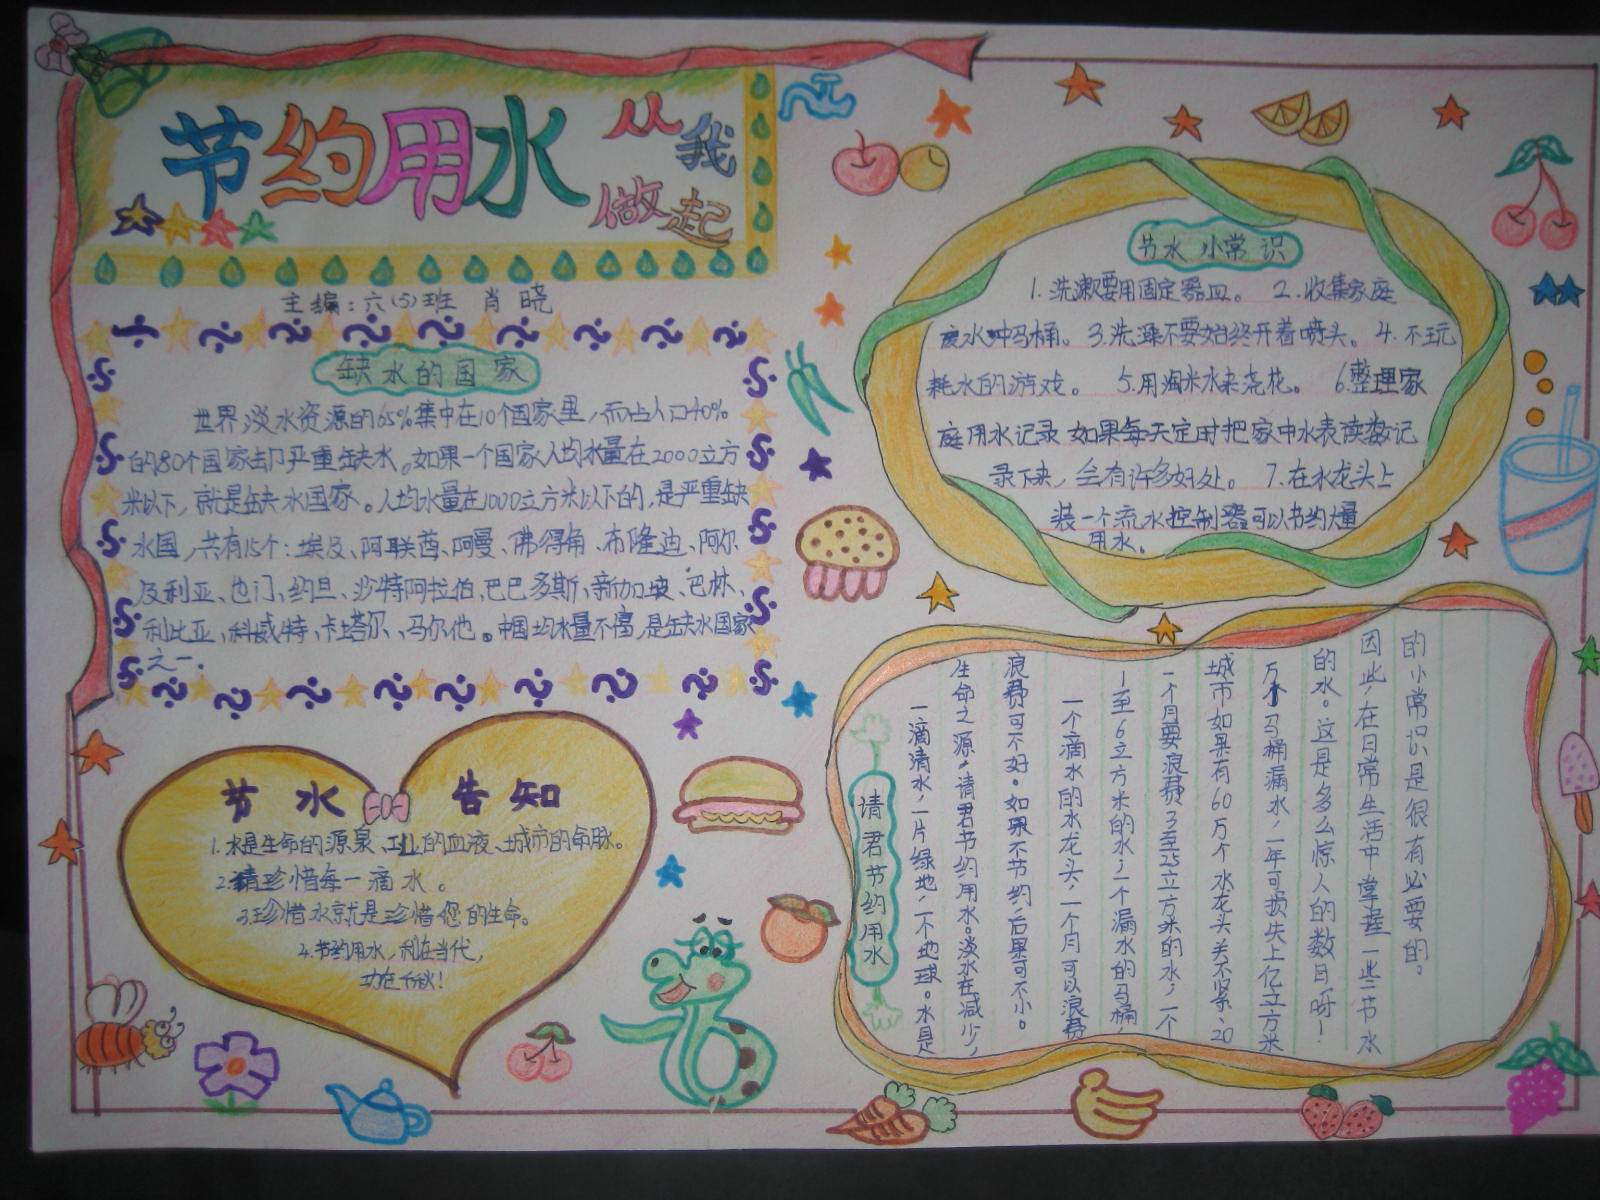 节约用水
从我
做起
主编:六(5)班 肖晓
缺水的国家
世界淡水资源的65%集中在10个国家里,而占人口40%
的80个国家却严重缺水。如果一个国家人均水量在2000立方
米以下,就是缺水国家。人均水量在1000立方米以下的,是严重缺
水国,共有15个:埃及、阿联酋、阿曼、佛得角、布隆迪、阿尔
及利亚、也门、约旦、沙特阿拉伯、巴巴多斯、新加坡、巴林、
利比亚、科威特、卡塔尔、马尔他。中国均水量不富,是缺水国家
之一.
节水 告知
1.水是生命的源泉、工业的血液、城市的命脉。
2.请珍惜每一滴水。
3.珍惜水就是珍惜您的生命。
4.节约用水,利在当代,
功在千秋!
节水 小常识
1.洗漱要用固定器皿。 2.收集家庭
废水冲马桶。3.洗澡不要始终开着喷头。4.不玩
耗水的游戏。 5.用淘米水来浇花。 6.整理家
庭用水记录 如果每天定时把家中水表读数记
录下来,会有许多好处。 7.在水龙头上
装一个流水控制器可以节约量
用水。
请君节约用水
一滴清水,一片绿地,一个地球。水是
生命之源,请君节约用水。淡水在减少,
浪费可不好。如果不节约,后果可不小。
一个滴水的水龙头,一个月可以浪费
1至6立方米的水,一个漏水的马桶,
一个月要浪费3至25立方米的水,一个
城市如果有60万个水龙头关不紧、20
万个马桶漏水,一年可损失上亿立方米
的水。这是多么惊人的数目呀!
因此,在日常生活中掌握一些节水
的小常识是很有必要的。